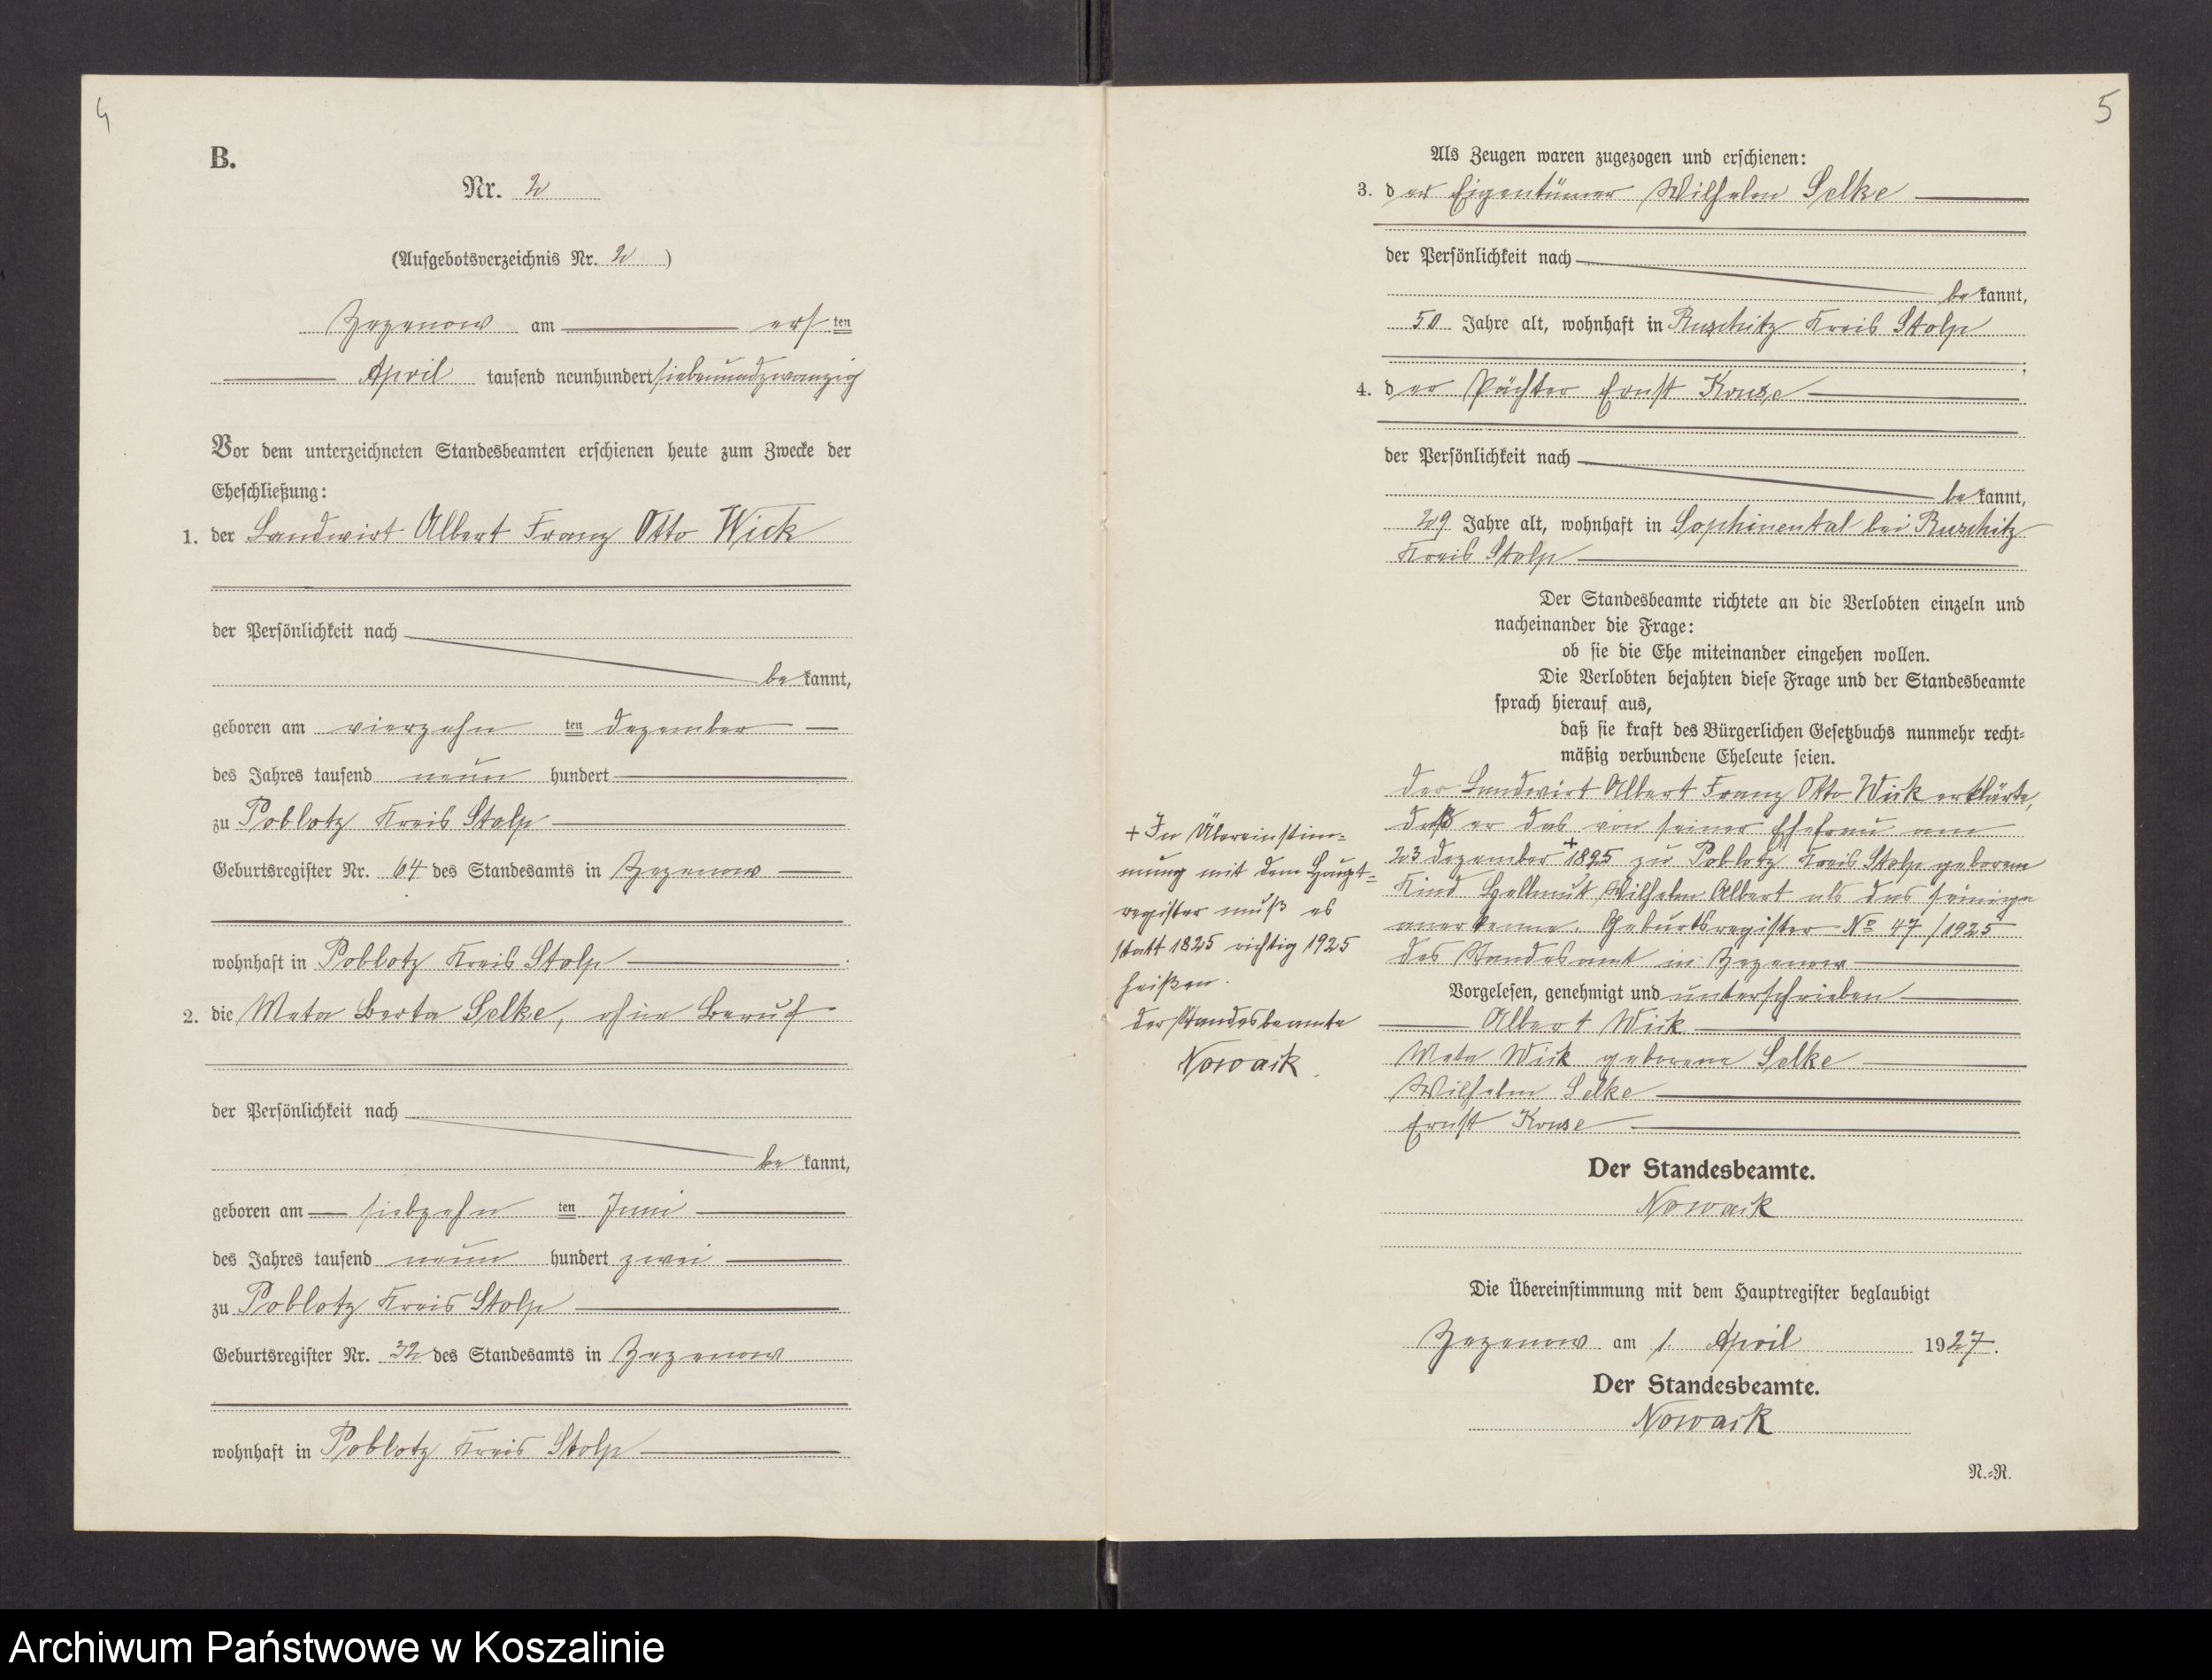 4
B.
Nr. 2
(Aufgebotsverzeichnis Nr. 2)
Zezenow am ersten
April tausend neunhundert siebenundzwanzig
Vor dem unterzeichneten Standesbeamten erschienen heute zum Zwecke der
Eheschließung:
1. der Landwirt Albert Franz Otto Wick
der Persönlichkeit nach
bekannt,
geboren am vierzehnten Dezember
des Jahres tausend neunhundert
zu Poblotz Kreis Stolp
Geburtsregister Nr. 64 des Standesamts in Zezenow
wohnhaft in Poblotz Kreis Stolp
2. die Meta Berta Selke, ohne Beruf
der Persönlichkeit nach
bekannt,
geboren am siebzehnten Juni
des Jahres tausend neunhundert zwei
zu Poblotz Kreis Stolp
Geburtsregister Nr. 32 des Standesamts in Zezenow
wohnhaft in Poblotz Kreis Stolp
5
Als Zeugen waren zugezogen und erschienen:
3. der Eigentümer Wilhelm Selke
der Persönlichkeit nach
bekannt,
50 Jahre alt, wohnhaft in Ruschitz Kreis Stolp
;
4. der Pächter Ernst
der Persönlichkeit nach
bekannt,
29 Jahre alt, wohnhaft in Sophienental bei Ruschitz
Kreis Stolp
Der Standesbeamte richtete an die Verlobten einzeln und
nacheinander die Frage:
ob sie die Ehe miteinander eingehen wollen.
Die Verlobten bejahten diese Frage und der Standesbeamte
sprach hierauf aus,
daß sie kraft des Bürgerlichen Gesetzbuchs nunmehr recht-
mäßig verbundene Eheleute seien.
Der Landwirt Albert Franz Otto Wick erklärte,
daß er das von seiner Ehefrau am
23 Dezember + 1825 zu Poblotz Kreis Stolp geborene
Kind Hellmut Wilhelm Albert als das seinige
anerkenne. Geburtsregister No 47/1925
des Standesamt in Zezenow
Vorgelesen, genehmigt und unterschrieben
Albert Wick
Meta Wick geborene Selke
Wilhelm Selke
Ernst
Der Standesbeamte.
Nowack
+ In Übereinstim=
mung mit dem Haupt=
register muß es
statt 1825 richtig 1925
heißen.
Der Standesbeamte
Nowack
Die Übereinstimmung mit dem Hauptregister beglaubigt
Zezenow am 1. April 1927.
Der Standesbeamte.
Nowack
N.-R.
Archiwum Państwowe w Koszalinie